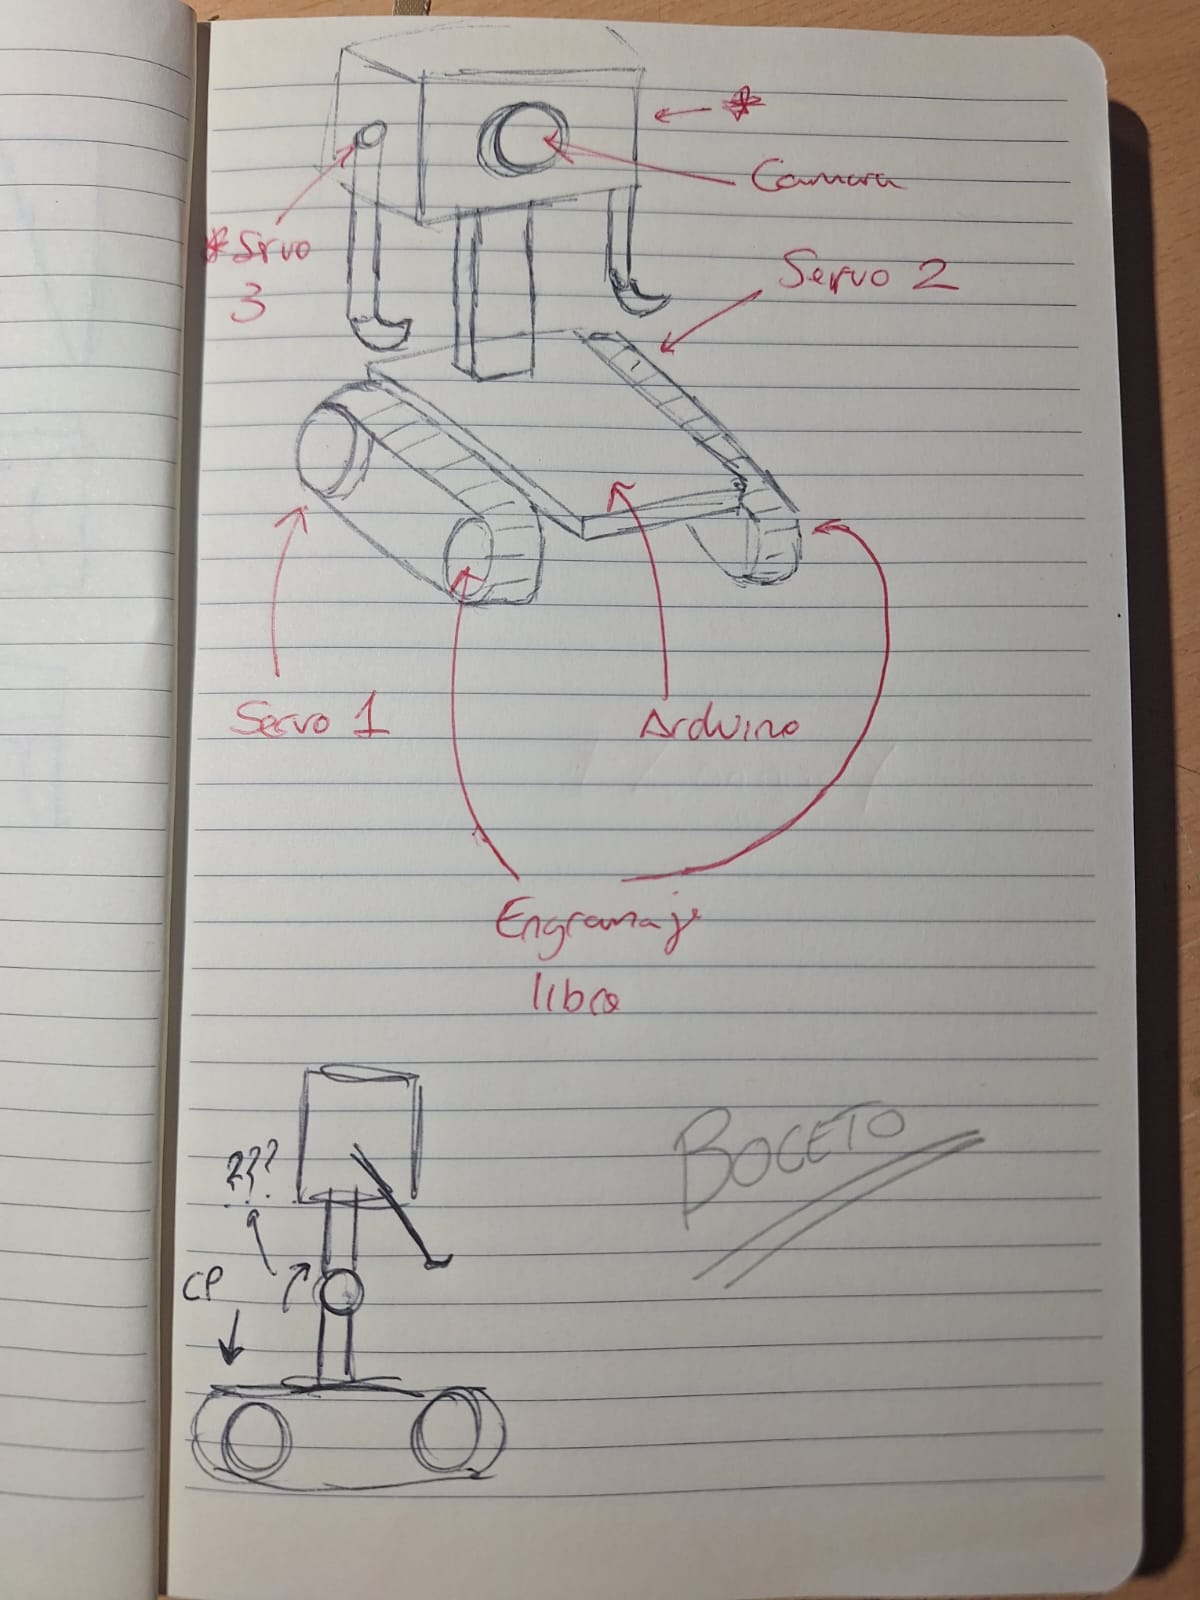 *
Camara
*Srvo
3
Servo 2
Servo 1
Arduino
Engramaje
libre
BOCETO
???
CP